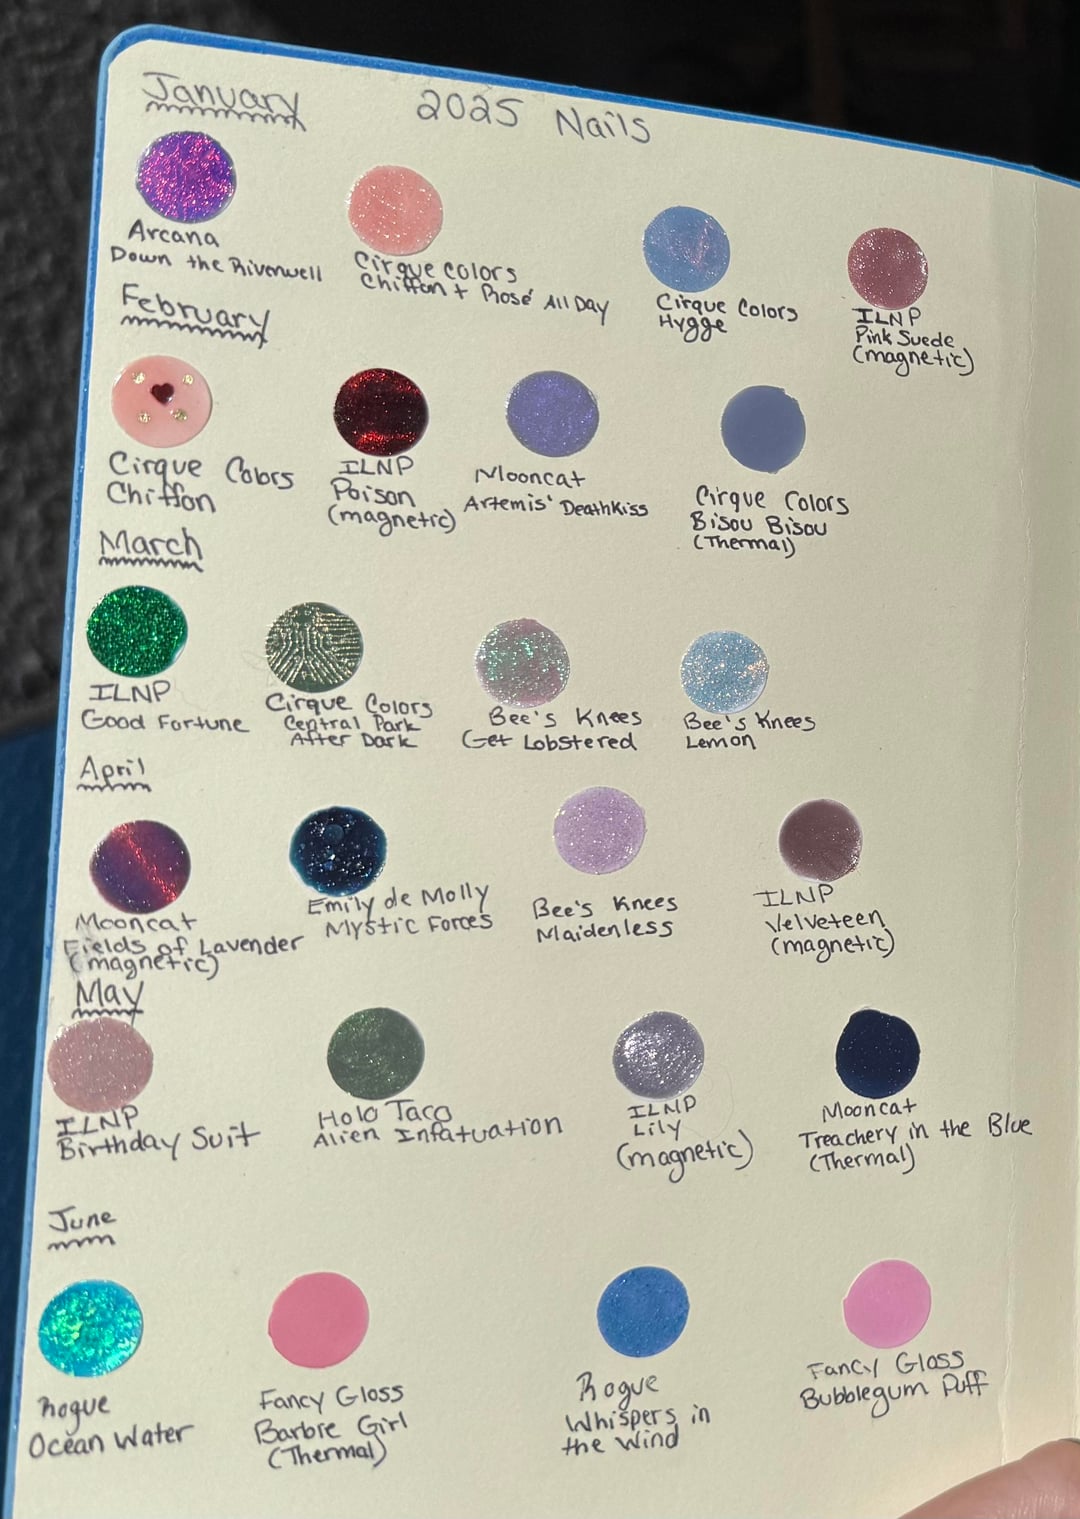 January 2025 Nails
Arcana
Down the Riverwell
Cirque Colors
Chiffon + Rosé All Day
Cirque Colors
Hygge
ILNP
Pink Suede
(magnetic)
February
Cirque Colors
Chiffon
ILNP
Poison
(magnetic)
Mooncat
Artemis' Deathkiss
Cirque Colors
Bisou Bisou
(Thermal)
March
ILNP
Good Fortune
Cirque Colors
Central Park
After Dark
Bee's Knees
Get Lobstered
Bee's Knees
Lemon
April
Mooncat
Fields of Lavender
(magnetic)
Emily de Molly
Mystic Forces
Bee's Knees
Maidenless
ILNP
Velveteen
(magnetic)
May
ILNP
Birthday Suit
Holo Taco
Alien Infatuation
ILNP
Lily
(magnetic)
Mooncat
Treachery in the Blue
(Thermal)
June
Rogue
Ocean Water
Fancy Gloss
Barbie Girl
(Thermal)
Rogue
Whispers in
the Wind
Fancy Gloss
Bubblegum Puff